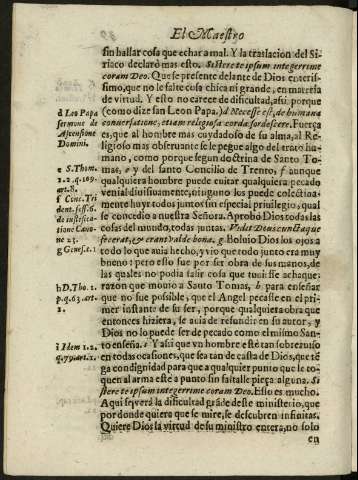 El Maestro
sin hallar cosa que echar a mal. Y la traslacion del Si-
riaco declarò mas esto. Sistere te ipsum integerrime
coram Deo. Que se presente delante de Dios enteris-
simo, que no le falte cosa chica ni grande, en materia
de virtud. Y esto no carece de dificultad, assi porque
(como dize san Leon Papa.) d Necesse est, de humana
conuersatione; etiam religiosa corda sordescere. Fuerça
es, que al hombre mas cuydadoso de su alma, al Re-
ligioso mas obseruante se le pegue algo del trato hu-
mano, como porque segun doctrina de Santo To-
mas, e y del santo Concilio de Trento, f aunque
qualquiera hombre puede euitar qualquiera pecado
venial diuisiuamente, ninguno los puede colectiua-
mente huyr todos juntos sin especial priuilegio, qual
se concedio a nuestra Señora. Aprobò Dios todas las
cosas del mundo, todas juntas. Vidit Deus cuncta que
fecerat, & erant valde bona, g Boluio Dios los ojos a
todo lo que auia hecho, y vio que todo junto era muy
bueno: pero esso fue por ser obra de sus manos, de
las quales no podia salir cosa que tuuiesse achaque:
razon que mouio a Santo Tomas, h para enseñar
que no fue possible, que el Angel pecasse en el pri-
mer instante de su ser, porque qualquiera obra que
entonces hiziera, se auia de refundir en su autor, y
Dios no lo puede ser de pecado como el mismo San-
to enseña. i Y assi que vn hombre esté tan sobre auiso
en todas ocasiones, que sea tan de casta de Dios, que tē
ga condignidad para que a qualquier punto que le to-
quen al arma estè a punto sin faltalle pieça alguna. Si
stere te ipsum integerrime coram Deo. Esso es mucho.
Aqui se verà la dificultad grāde deste ministerio, que
por donde quiera que se mire, se descubren infinitas.
Quiere Dios la virtud de su ministro entera, no solo
en
d Leo Papa
sermone de
Ascensione
Domini.
e S. Thom.
1.2. q. 109.
art. 8.
f Conc. Tri
dent. sess. 6.
de iustifica-
tione Cano-
ne 23.
g Genes. c. 1
h D. Tho. 1.
p. q. 63. art.
i Idem 1.2.
q. 79. art. 1.